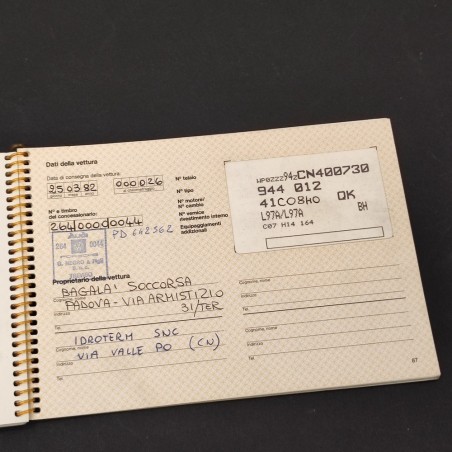 Dati della vettura
Data di consegna della vettura:
25 03 82 000026
N° telaio
N° tipo
N° motore/
N° cambio
N° vernice
rivestimento interno
Equipaggiamenti
addizionali
N° e timbro
del concessionario:
26400000044
PD 642562
264 0044
WP0ZZZ94ZCN400730
944 012
41C08H0 QK
L97A/L97A BH
C07 M14 164
Proprietario della vettura
BAGALA' SOCCORSA
Cognome, nome
PADOVA - VIA ARMISTIZIO
Indirizzo
31/TER
Tel.
IDROTERM SNC
Cognome, nome
VIA VALLE PO (CN)
Indirizzo
Tel.
Cognome, nome
Indirizzo
Tel.
Cognome, nome
Indirizzo
Tel.
67